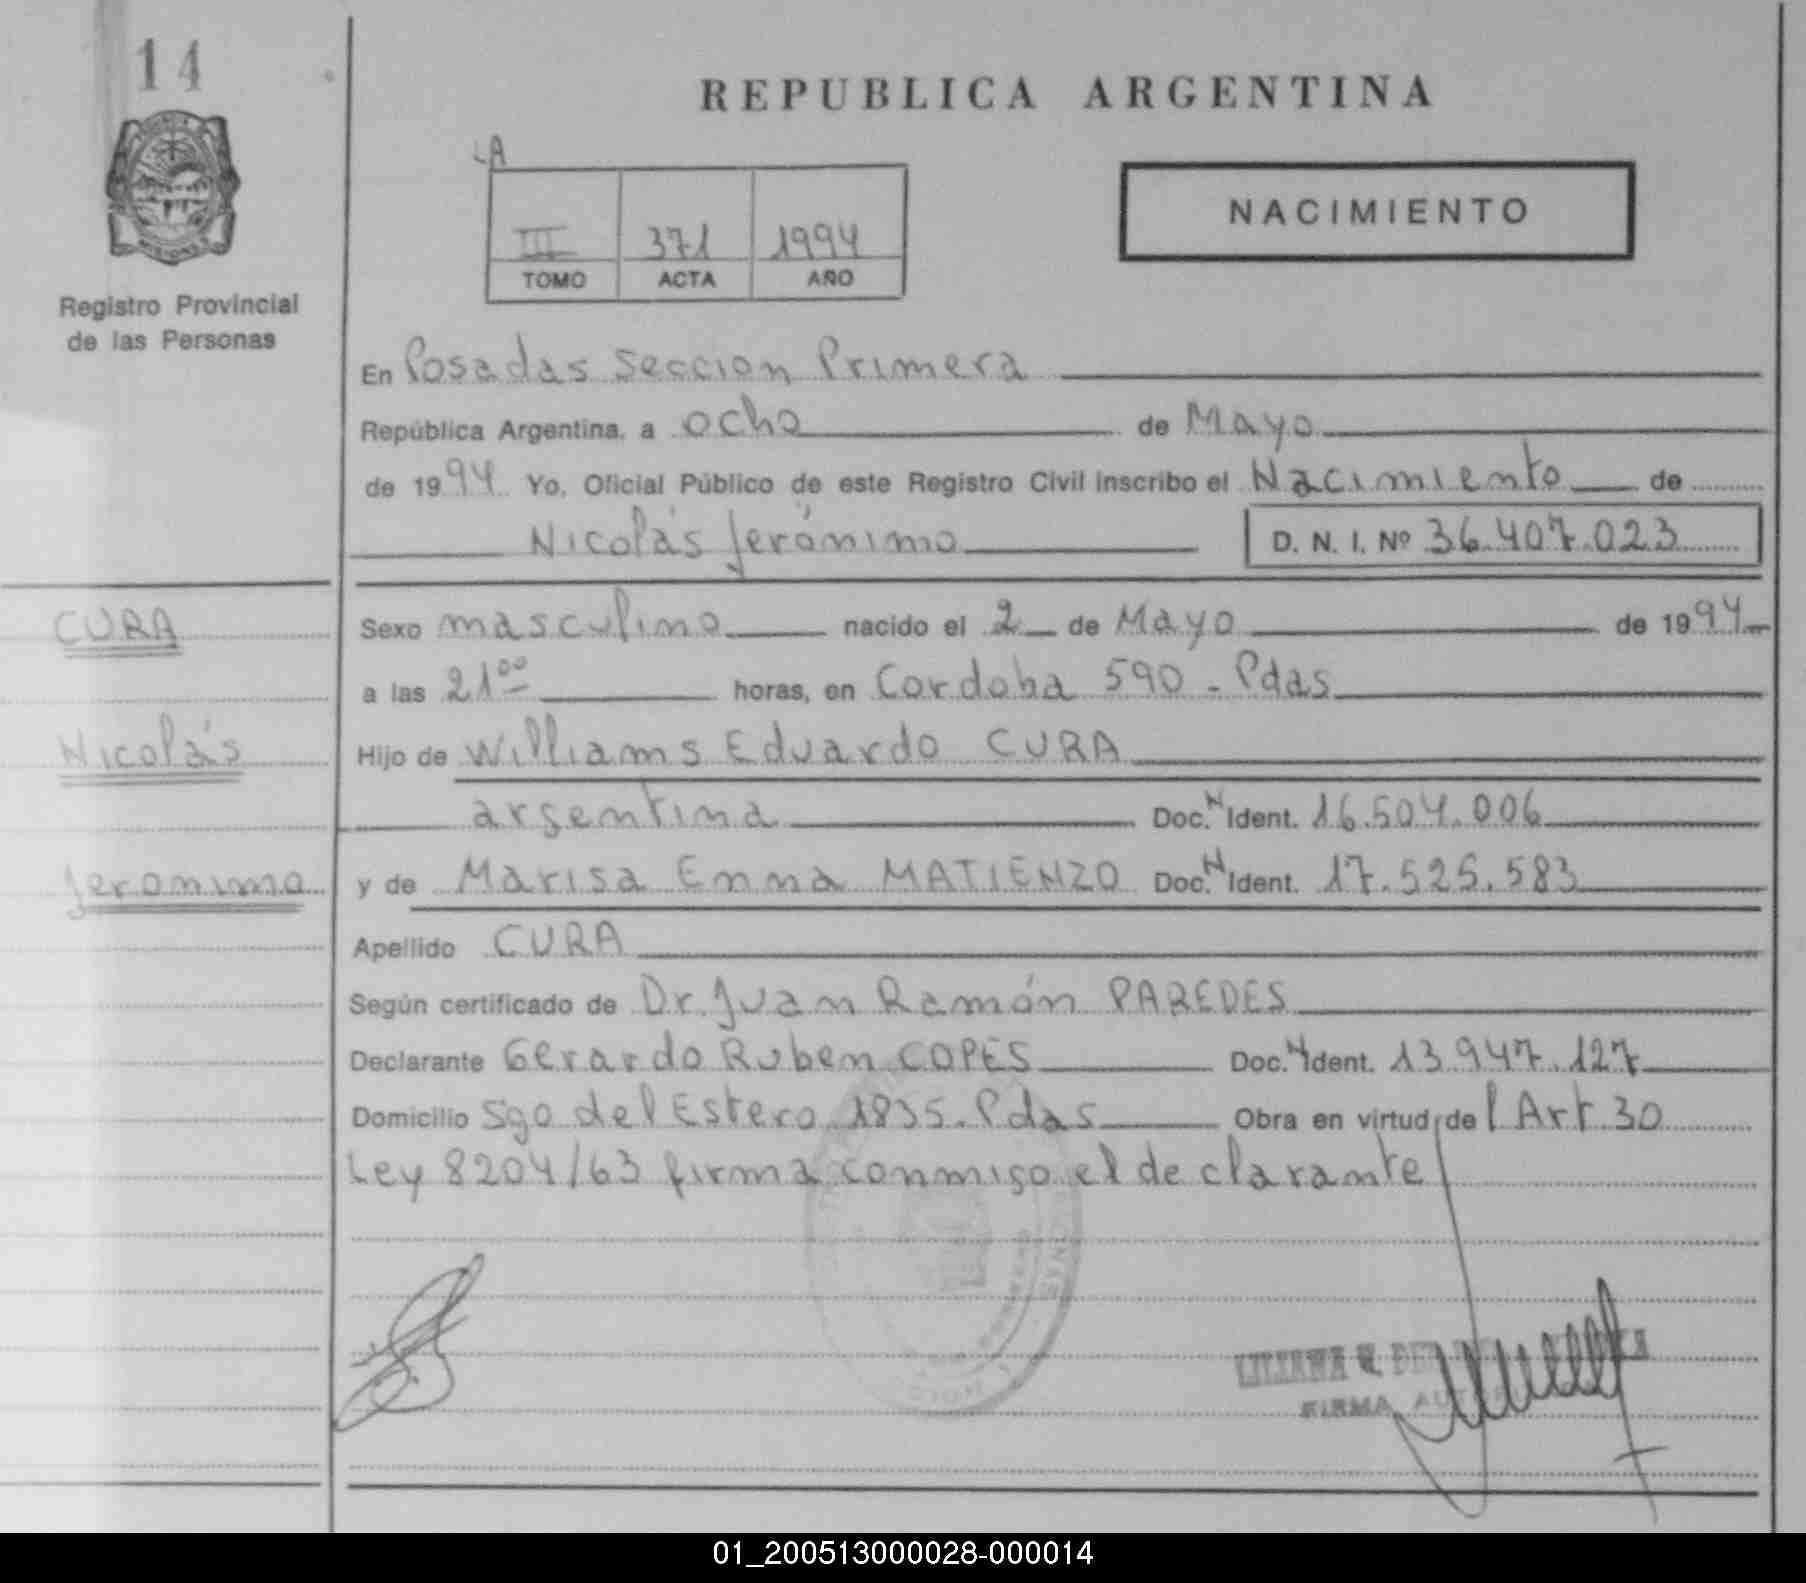 14
MISIONES
Registro Provincial
de las Personas
REPUBLICA ARGENTINA
LA
III 371 1994
TOMO ACTA AÑO
NACIMIENTO
En Posadas Seccion Primera
República Argentina, a ocho de Mayo
de 1994 Yo, Oficial Público de este Registro Civil inscribo el Nacimiento de
Nicolás Jerónimo D. N. I. Nº 36.407.023
CURA
Sexo masculino nacido el 2 de Mayo de 1994
a las 21⁰⁰ horas, en Cordoba 590 - Pdas
Nicolás
Hijo de Williams Eduardo CURA
argentina Doc. N Ident. 16.504.006
Jeronimo
y de Marisa Emma MATIENZO Doc. N Ident. 17.525.583
Apellido CURA
Según certificado de Dr. Juan Ramón PAREDES
Declarante Gerardo Ruben COPES Doc. N Ident. 13.947.127
Domicilio Sgo del Estero 1835. Pdas Obra en virtud del Art 30
Ley 8204/63 firma conmigo el declarante
LILIANA
FIRMA
01_200513000028-000014